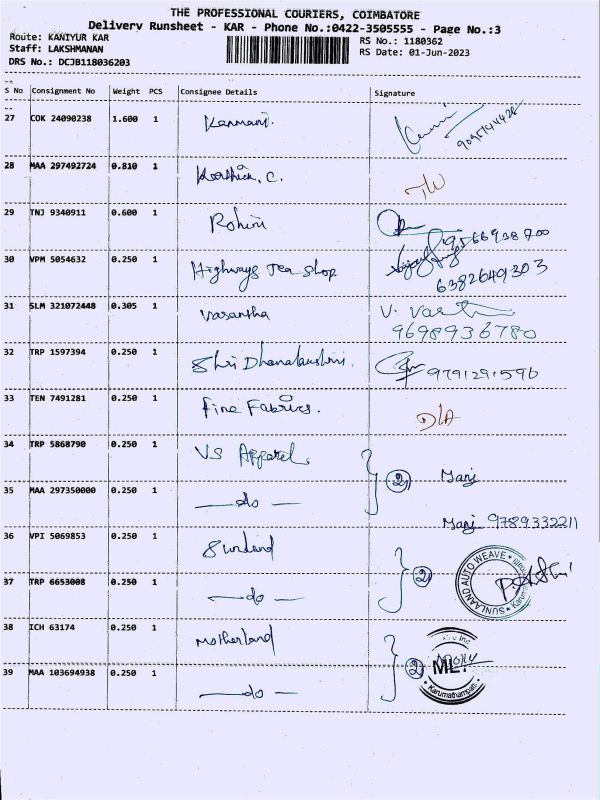 THE PROFESSIONAL COURIERS, COIMBATORE
Delivery Runsheet - KAR - Phone No.:0422-3505555 - Page No.:3
Route: KANIYUR KAR
RS No.: 1180362
Staff: LAKSHMANAN
RS Date: 01-Jun-2023
DRS No.: DCJB118036203
S No Consignment No Weight PCS Consignee Details Signature
27 COK 24090238 1.600 1 Kanmani.
28 MAA 297492724 0.810 1 Karthick. C.
29 TNJ 9340911 0.600 1 Rohini 9566938700
30 VPM 5054632 0.250 1 Highways Tea Shop 6382649303
31 SLM 321072448 0.305 1 Vasantha V. Vasth
9698936780
32 TRP 1597394 0.250 1 Shri Dhanalakshmi. 9791291596
33 TEN 7491281 0.250 1 Fine Fabrics. D/A
34 TRP 5868790 0.250 1 VS Apparel 2 Manj
35 MAA 297350000 0.250 1 —do— Manj 9789332211
36 VPI 5069853 0.250 1 Sunland
SUNLAAND AUTO WEAVE
37 TRP 6653008 0.250 1 —do— 2
38 ICH 63174 0.250 1 Motherland
39 MAA 103694938 0.250 1 —do— 2 ML
Karumathampatti